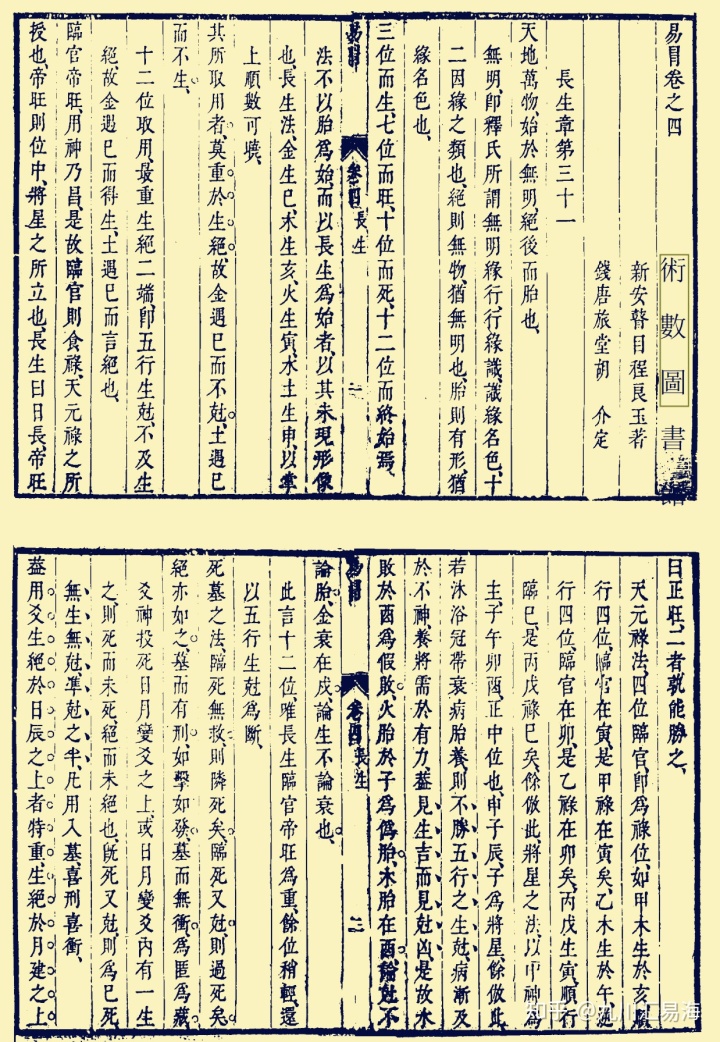 易冐卷之四
術數圖書館
新安瞽目程良玉著
錢唐旅堂胡　介定
長生章第三十一
天地萬物、始於無明、絕後而胎也、
無明、卽釋氏所謂無明緣行、行緣識、識緣名色、十
二因緣之類也、絕則無物、猶無明也、胎則有形、猶
緣名色也、
三位而生、七位而旺、十位而死、十二位而終始焉、
易冐　卷四　長生　一
法不以胎為始、而以長生為始者、以其未現形像
也、長生法、金生巳、木生亥、火生寅、水土生申、以掌
上順數可曉、
其所取用者、莫重於生絕、故金遇巳而不尅、土遇巳
而不生、
十二位取用、最重生絕二端、卽五行生尅、不及生
絕、故金遇巳而得生、土遇巳而言絕也、
臨官帝旺、用神乃昌、是故臨官則食祿、天元祿之所
授也、帝旺則位中、將星之所立也、長生日日長、帝旺
日正旺、二者孰能勝之、
天元祿法、四位臨官、卽為祿位、如甲木生於亥、順
行四位、臨官在寅、是甲祿在寅矣、乙木生於午、逆
行四位、臨官在卯、是乙祿在卯矣、丙戊生寅、順行
臨巳、是丙戊祿巳矣、餘倣此、將星之法、以中神為
主、子午卯酉、正中位也、申子辰、子為將星、餘倣此、
若沐浴冠帶衰病胎養、則不勝五行之生尅、病漸及
於不神、養將需於有力、蓋見生吉而見尅凶、是故木
敗於酉為假敗、火胎於子為偽胎、木胎在酉、論尅不
易冐　卷四　長生　二
論胎、金衰在戌、論生不論衰也、
此言十二位、唯長生臨官帝旺為重、餘位稍輕、還
以五行生尅為斷、
死墓之法、臨死無救、則隣死矣、臨死又尅、則過死矣、
絕亦如之、墓而有刑、如擊如發、墓而無衝、為匿為藏、
爻神投死日月變爻之上、或日月變爻內有一生
之、則死而未死、絕而未絕也、旣死又尅、則為已死
無生無尅、準尅之半、凡用入墓、喜刑喜衝、
蓋用爻生絕於日辰之上者特重、生絕於月建之上
知乎 @九川汇易海